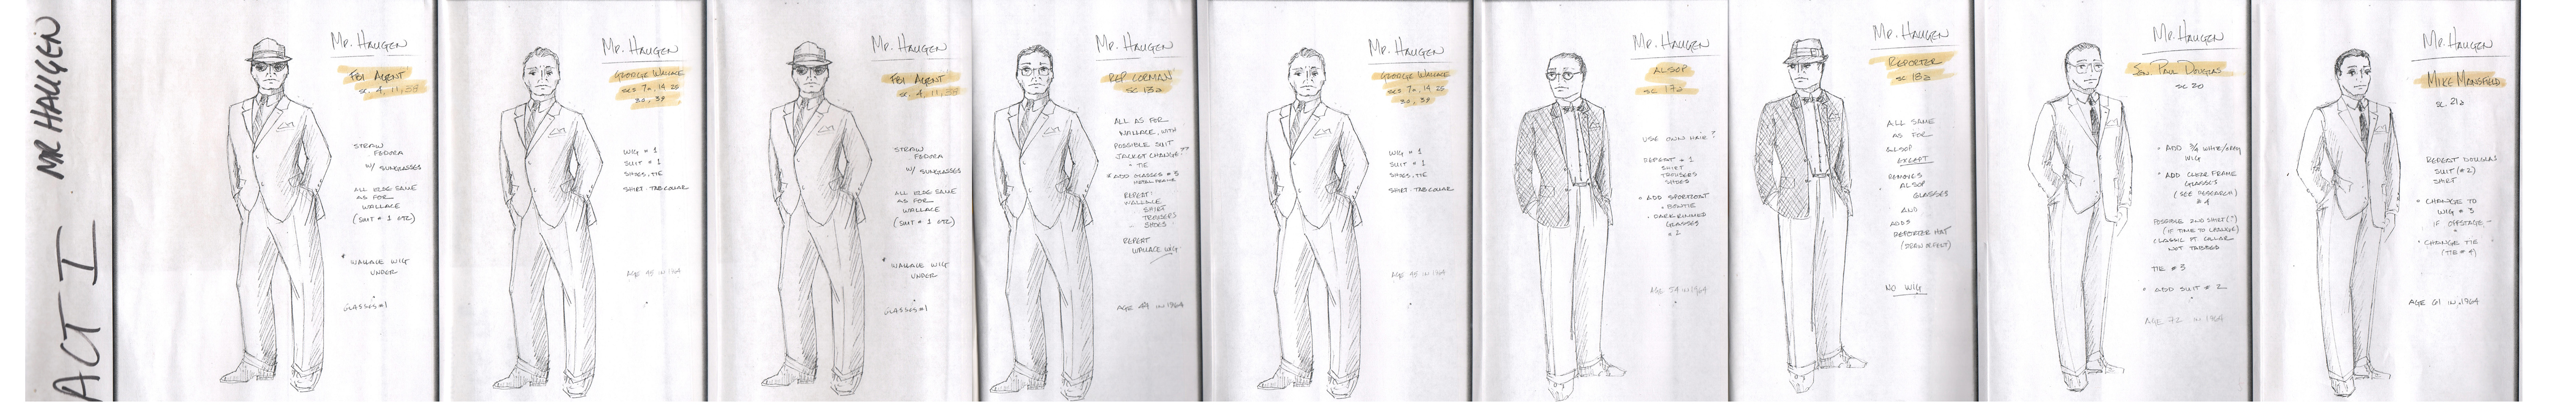 ACT I MR HAUGEN
Mr. HAUGEN
FBI AGENT
SC. 4, 11, 38
STRAW
FEDORA
W/ SUNGLASSES
ALL ELSE SAME
AS FOR
WALLACE
(SUIT #1 ETC)
* WALLACE WIG
UNDER
GLASSES #1
Mr. HAUGEN
GEORGE WALLACE
SCS 7a, 14 26
30, 39
WIG #1
SUIT #1
SHOES, TIE
SHIRT: TAB COLLAR
AGE 45 IN 1964
Mr. HAUGEN
FBI AGENT
SC. 4, 11, 38
STRAW
FEDORA
W/ SUNGLASSES
ALL ELSE SAME
AS FOR
WALLACE
(SUIT #1 ETC)
* WALLACE WIG
UNDER
GLASSES #1
Mr. HAUGEN
REP CORMAN
SC 13a
ALL AS FOR
WALLACE, WITH
POSSIBLE SUIT
JACKET CHANGE??
+ TIE
* ADD GLASSES #3
METAL FRAME
REPEAT:
WALLACE
SHIRT
TROUSERS
SHOES
REPEAT
WALLACE WIG
AGE 44 IN 1964
Mr. HAUGEN
GEORGE WALLACE
SCS 7a, 14 26
30, 39
WIG #1
SUIT #1
SHOES, TIE
SHIRT: TAB COLLAR
AGE 45 IN 1964
Mr. HAUGEN
ALSOP
SC 17a
USE OWN HAIR?
REPEAT #1
SHIRT
TROUSERS
SHOES
* ADD SPORTCOAT
* BOWTIE
* DARK RIMMED
GLASSES
#2
AGE 54 IN 1964
Mr. HAUGEN
REPORTER
SC 18a
ALL SAME
AS FOR
ALSOP
EXCEPT
REMOVES
ALSOP
GLASSES
AND
ADDS
REPORTER HAT
NO WIG
Mr. HAUGEN
SEN PAUL DOUGLAS
SC 20
* ADD 3/4 WHITE/GREY
WIG
* ADD CLEAR FRAME
GLASSES
(SEE RESEARCH)
#4
POSSIBLE 2ND SHIRT(?)
(IF TIME TO CHANGE)
CLASSIC PT COLLAR
NOT TABBED
TIE #3
* ADD SUIT #2
AGE 72 IN 1964
Mr. HAUGEN
MIKE MANSFIELD
SC. 21a
REPEAT DOUGLAS
SUIT (#2)
SHIRT
* CHANGE TO
WIG #3
IF OFFSTAGE
* CHANGE TIE
(TIE #4)
AGE 61 IN 1964